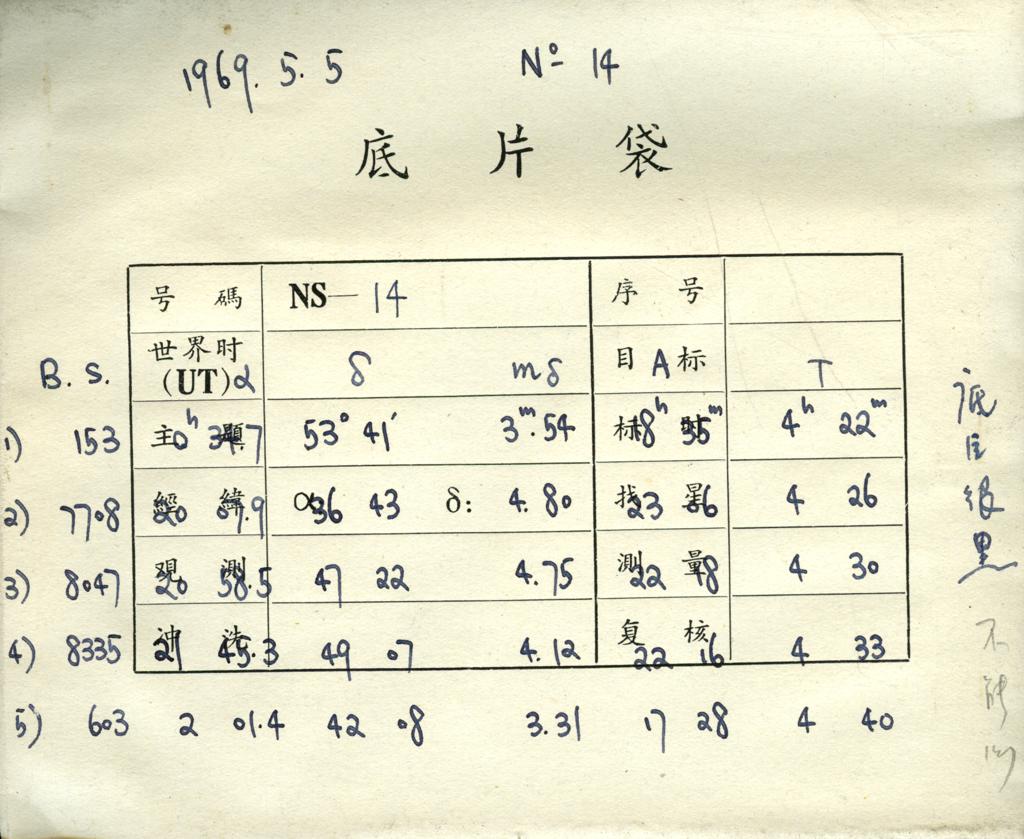 1969. 5. 5 Nº 14
底 片 袋
号 碼 NS— 14 序 号
世界时
B. S. (UT) α δ mδ 目 A 标 T
1) 153 主 題 0ʰ 34.7 53° 41′ 3ᵐ.54 标 时 18ʰ 35ᵐ 4ʰ 22ᵐ
2) 7708 經 緯 20 07.9 α 36 43 δ: 4.80 找 星 23 06 4 26
3) 8047 观 測 20 58.5 47 22 4.75 測 量 22 48 4 30
4) 8335 冲 洗 21 45.3 49 07 4.12 复 核 22 16 4 33
5) 603 2 01.4 42 08 3.31 17 28 4 40
底
很
黑
不
能